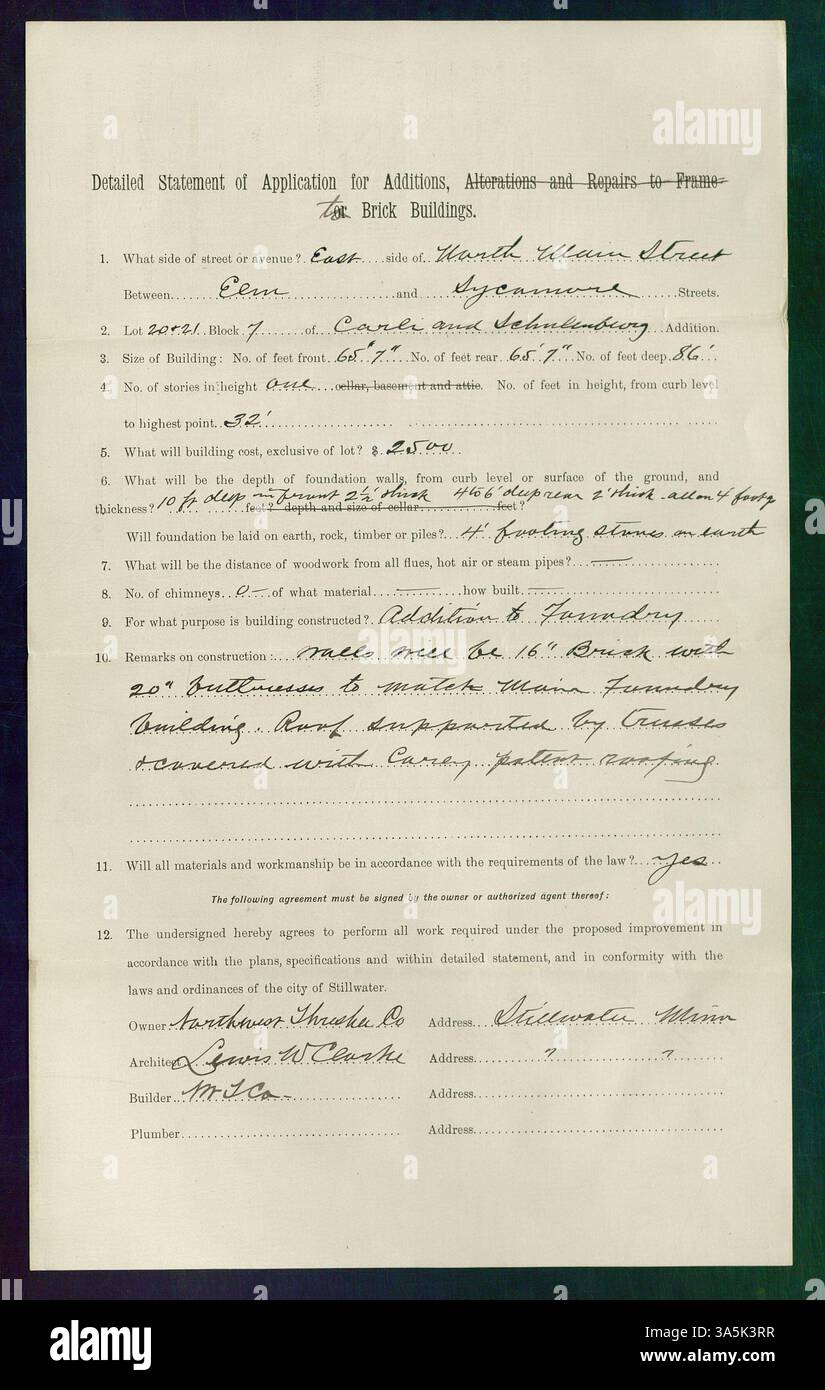 Detailed Statement of Application for Additions, Alterations and Repairs to Frame
to Brick Buildings.
1. What side of street or avenue? East side of North Main Street
Between Elm and Sycamore Streets.
2. Lot 20+21 Block 7 of Carli and Schulenburg Addition.
3. Size of Building: No. of feet front 65' 7" No. of feet rear 65' 7" No. of feet deep 86'
4. No. of stories in height one cellar, basement and attic. No. of feet in height, from curb level
to highest point 32'
5. What will building cost, exclusive of lot? $ 2500
6. What will be the depth of foundation walls, from curb level or surface of the ground, and
thickness? 10 ft deep in front 2½' thick 4 to 6' deep rear 2' thick all on 4 foot
feet? depth and size of cellar feet?
Will foundation be laid on earth, rock, timber or piles? 4' footing stones on earth
7. What will be the distance of woodwork from all flues, hot air or steam pipes? —
8. No. of chimneys 0 — of what material — how built —
9. For what purpose is building constructed? Addition to Foundry
10. Remarks on construction: walls will be 16" Brick with
20" buttresses to match Main Foundry
building. Roof supported by trusses
& covered with Carey patent roofing
11. Will all materials and workmanship be in accordance with the requirements of the law? yes
The following agreement must be signed by the owner or authorized agent thereof:
12. The undersigned hereby agrees to perform all work required under the proposed improvement in
accordance with the plans, specifications and within detailed statement, and in conformity with the
laws and ordinances of the city of Stillwater.
Owner Northwest Thresher Co Address Stillwater Minn
Architect Lewis W Clarke Address " "
Builder NW T Co Address
Plumber Address
alamy
Image ID: 3A5K3RR
www.alamy.com